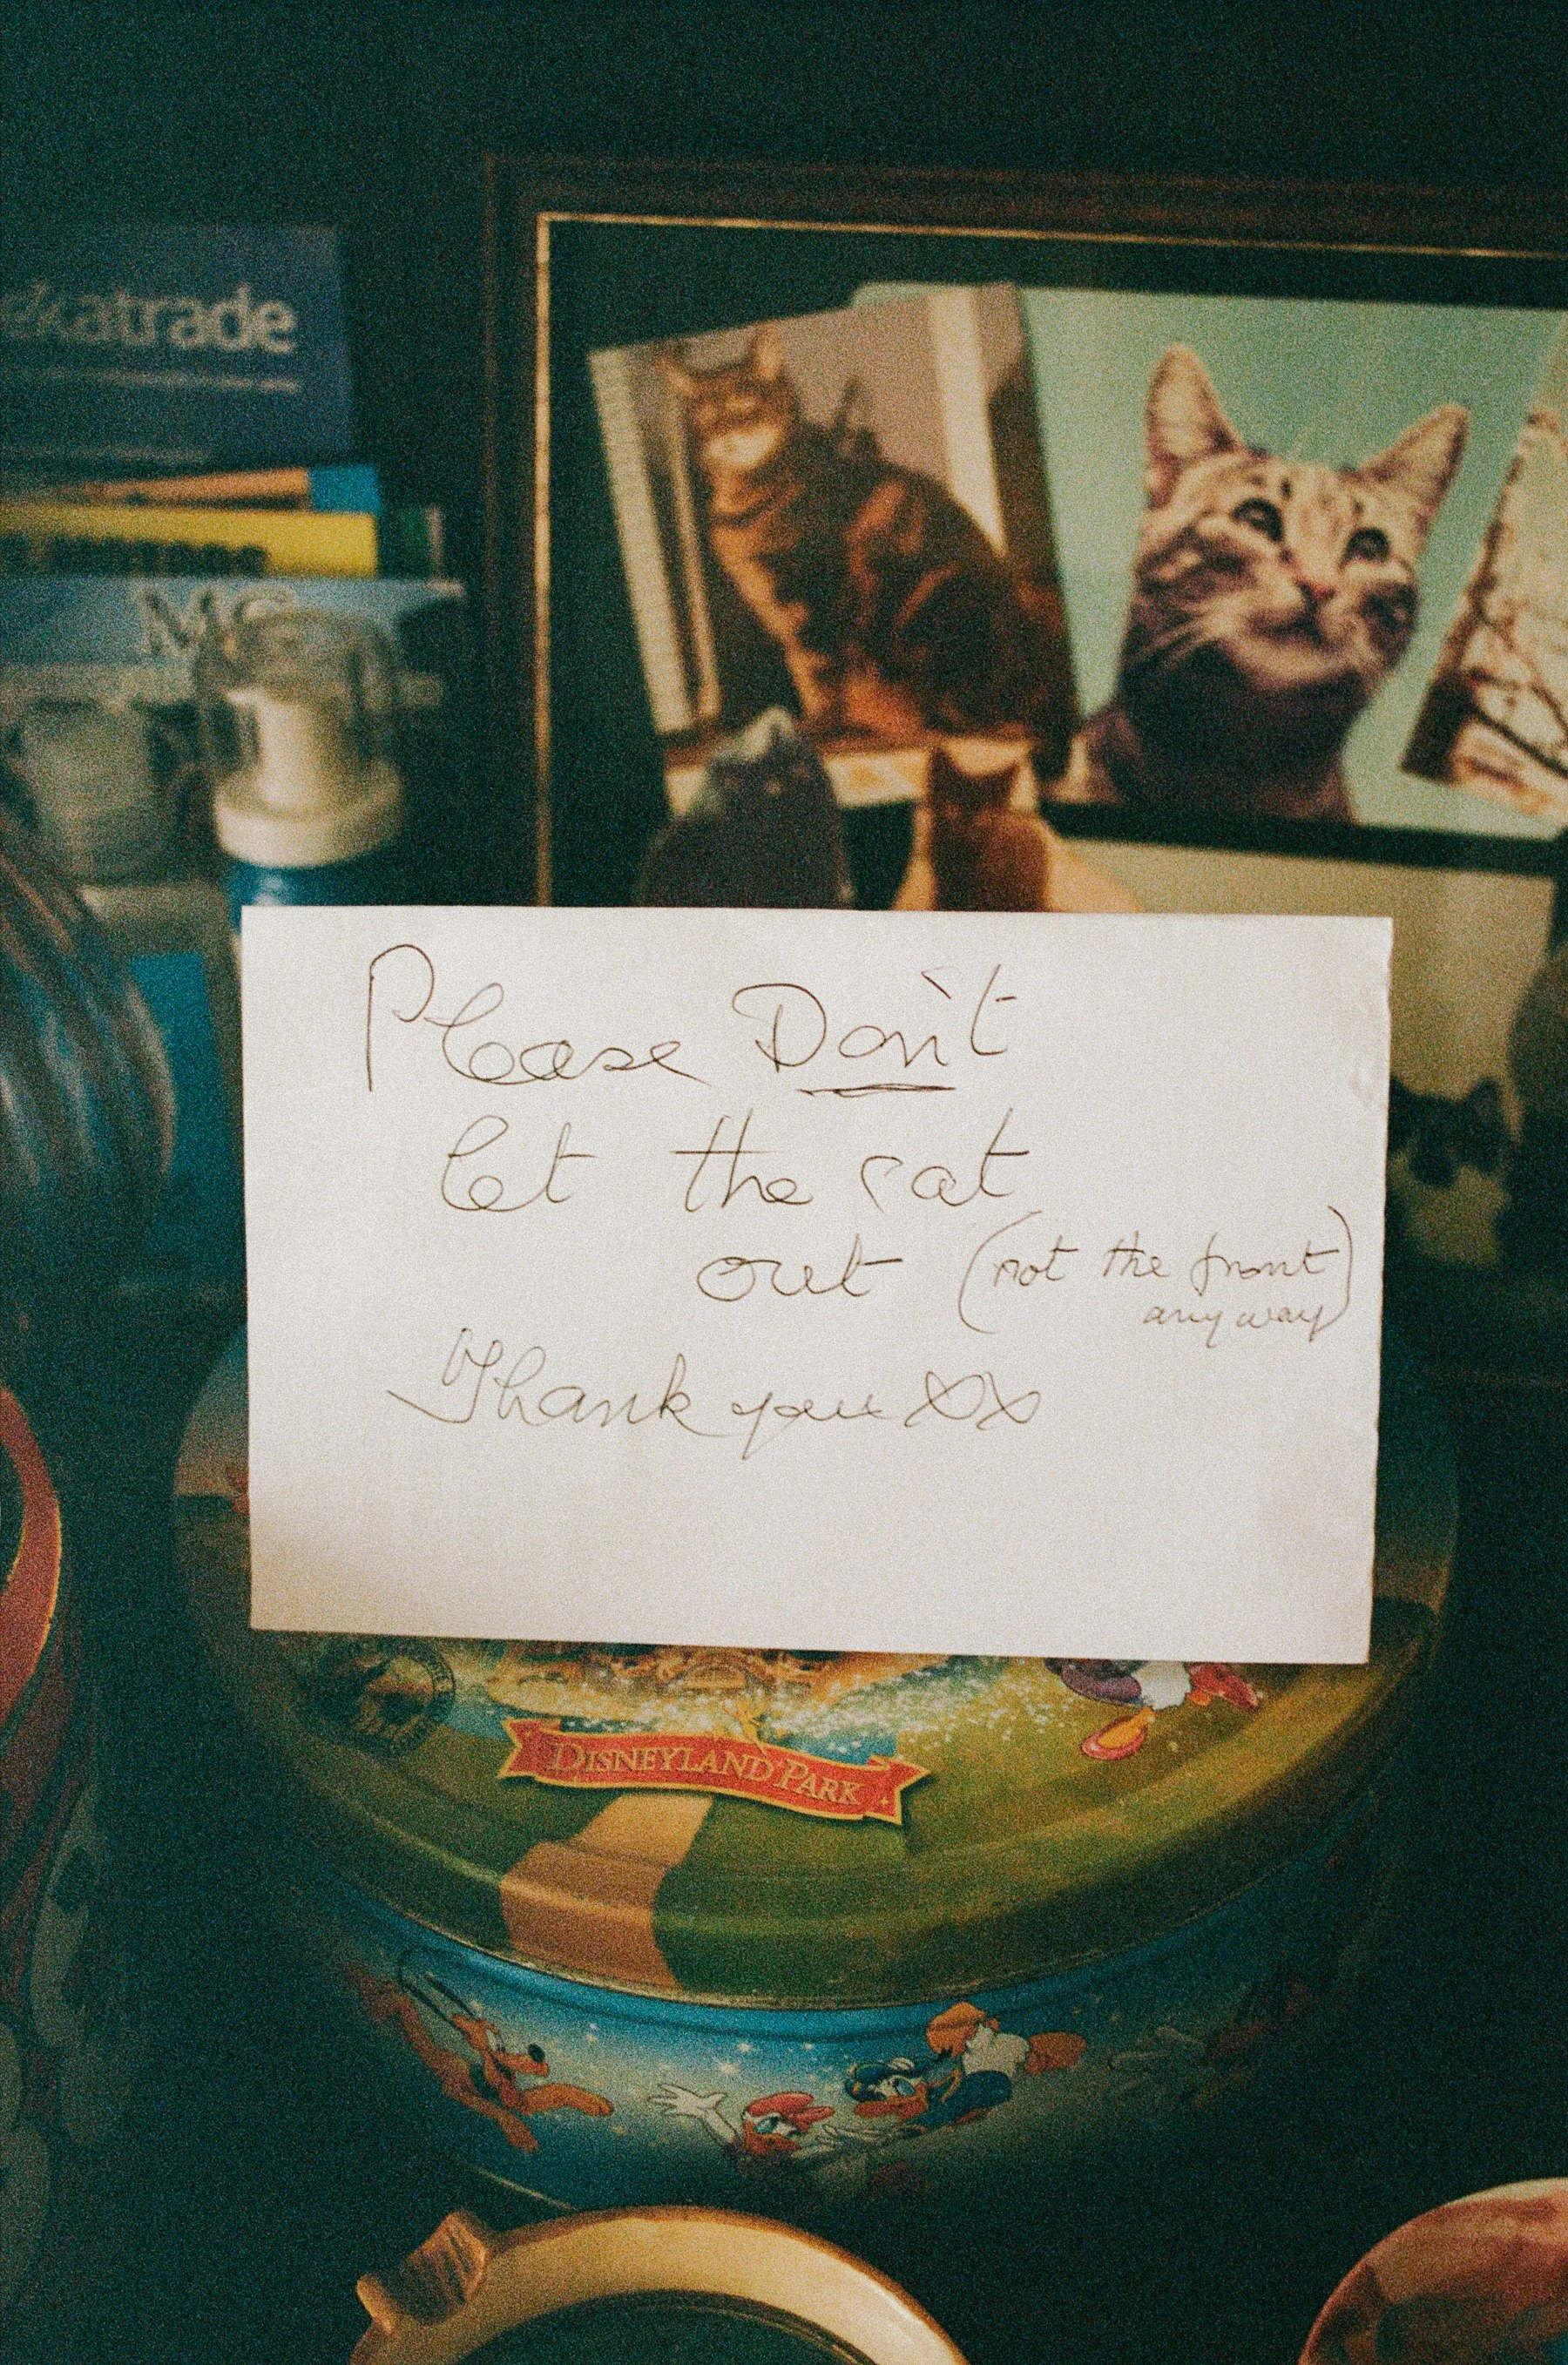 katrade
Please Don't
let the cat
out (not the front)
any way
Thank you xx
DISNEYLAND PARK